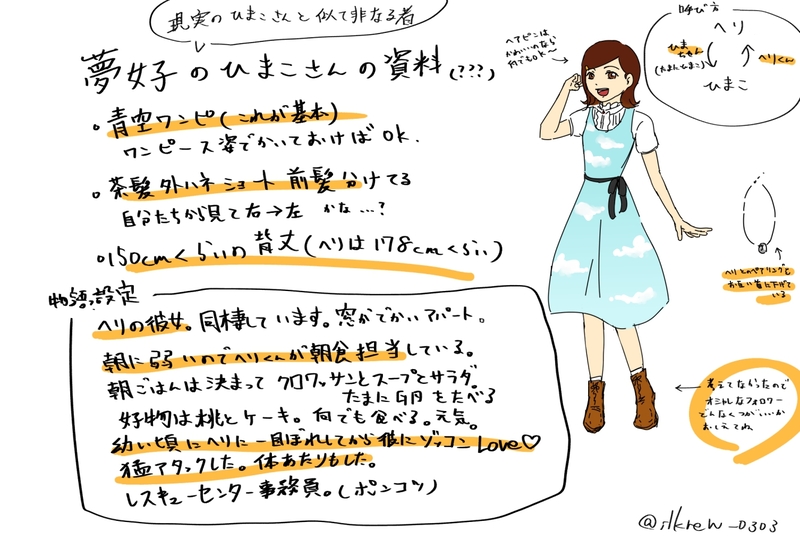 現実のひまこさんと似て非なる者
夢女子のひまこさんの資料(???)
。青空ワンピ(これが基本)
ワンピース姿でかいておけばOK.
。茶髪外ハネショート 前髪分けてる
自分たちから見て右→左 かな…?
。150cmくらいの背丈(ヘリは178cmくらい)
物語設定
ヘリの彼女。同棲しています。窓がでかいアパート。
朝に弱いのでヘリくんが朝食担当している。
朝ごはんは決まってクロワッサンとスープとサラダ。
たまに
をたべる
好物は桃とケーキ。何でも食べる。元気。
幼い頃にヘリに一目ぼれしてから彼にゾッコンLove♡
猛アタックした。体あたりもした。
レスキューセンター事務員。(ポンコツ)
ヘアピンは
かわいいのなら
何でもOK〜
呼び方
ヘリ
ひまちゃん
(たまにひまこ)
↓
↑
ヘリくん
ひまこ
ヘリとのペアリングを
お互い首に下げて
いる
考えてなかったので
オシャレなフォロワー
どんなくつがいいか
おしえてね
@ilkrew_0303